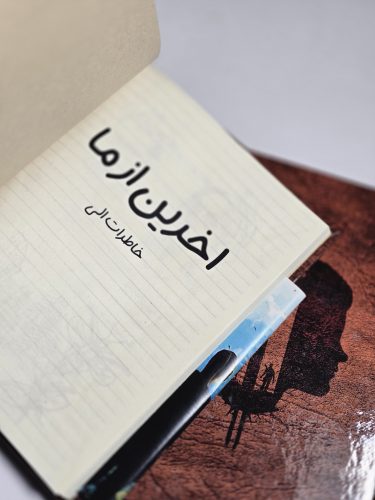 اخرین از ما
خاطرات الی